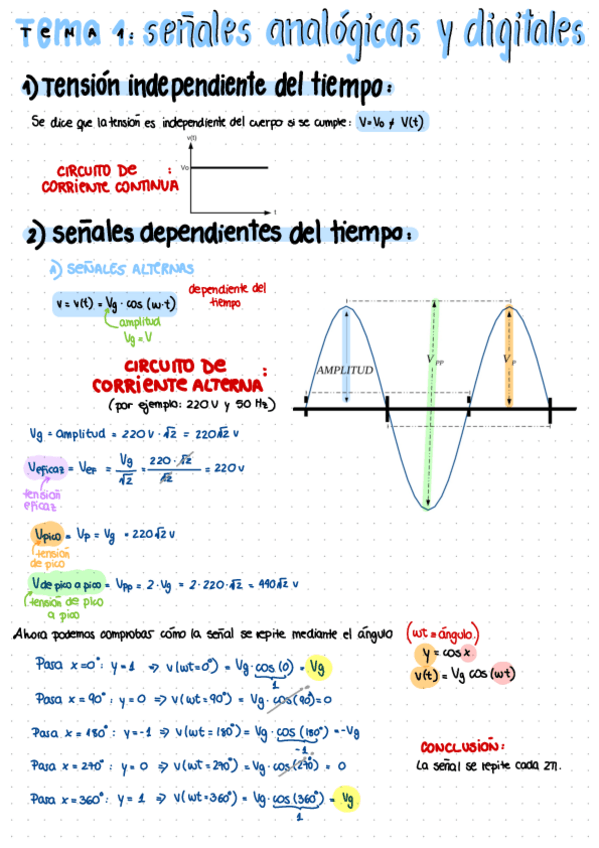 Tema 1: señales analógicas y digitales
TEMA 1:
1) Tensión independiente del tiempo:
Se dice que la tensión es independiente del cuerpo si se cumple: V=V₀ ≠ V(t)
v(t)
V₀
t
CIRCUITO DE CORRIENTE CONTINUA :
2) Señales dependientes del tiempo:
A) SEÑALES ALTERNAS
v = v(t) = Vg · cos (w·t)
dependiente del tiempo
amplitud
Vg = V
CIRCUITO DE CORRIENTE ALTERNA :
(por ejemplo: 220 V y 50 Hz)
AMPLITUD
V PP
V P
Vg = amplitud = 220 V · √2 = 220√2 V
Veficaz = Vef = Vg/√2 = 220·√2/√2 = 220 V
tensión eficaz
Vpico = Vp = Vg = 220√2 V
tensión de pico
V de pico a pico = Vpp = 2·Vg = 2·220·√2 = 440√2 V
tensión de pico a pico
Ahora podemos comprobar cómo la señal se repite mediante el ángulo (wt = ángulo.)
y = cos x
v(t) = Vg cos (wt)
Para x = 0°: y = 1 => v(wt=0°) = Vg · cos (0) = Vg
1
Para x = 90°: y = 0 => v(wt=90°) = Vg · cos(90°) = 0
Para x = 180°: y = -1 => v(wt=180°) = Vg · cos (180°) = -Vg
-1
Para x = 270°: y = 0 => v(wt=270°) = Vg · cos(270°) = 0
Para x = 360°: y = 1 => v(wt=360°) = Vg · cos(360°) = Vg
1
CONCLUSIÓN:
La señal se repite cada 2π.